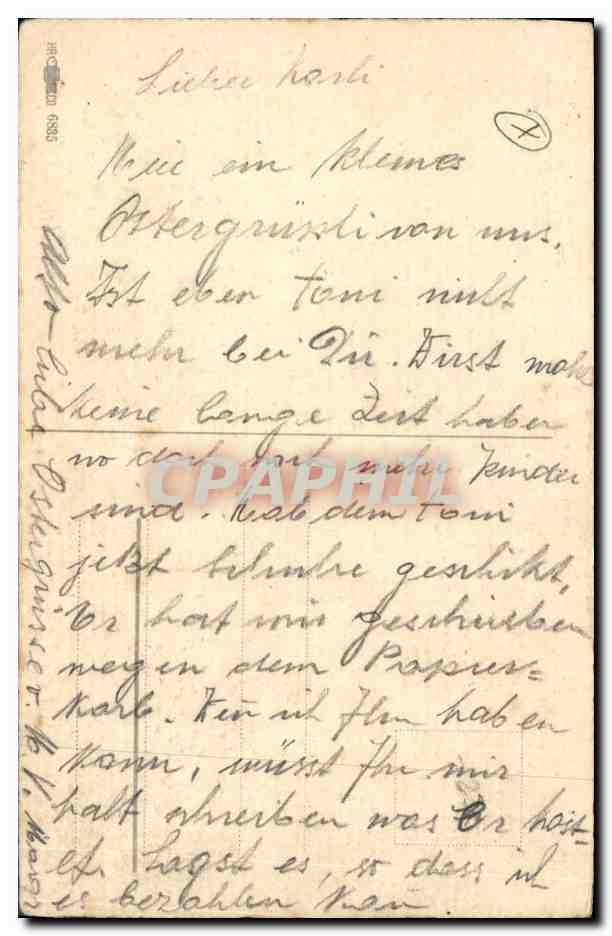 6885
Lieber Karli
Nur ein kleines
Ostergrüssli von uns.
Ist eben Toni nicht
mehr bei Dir. Wirst wohl
keine lange Zeit haben
wo doch noch mehr Kinder
sind. Hab dem Toni
jetzt Schuhe geschickt,
Er hat mir geschrieben
wegen dem Papier=
Korb. Wen ich Ihn haben
kann, müsst Ihr mir
halt schreiben was Er kost-
et. Sagst es, so dass ich
es bezahlen kan
Also liebe Ostergrüsse v. M.
CPAPHIL